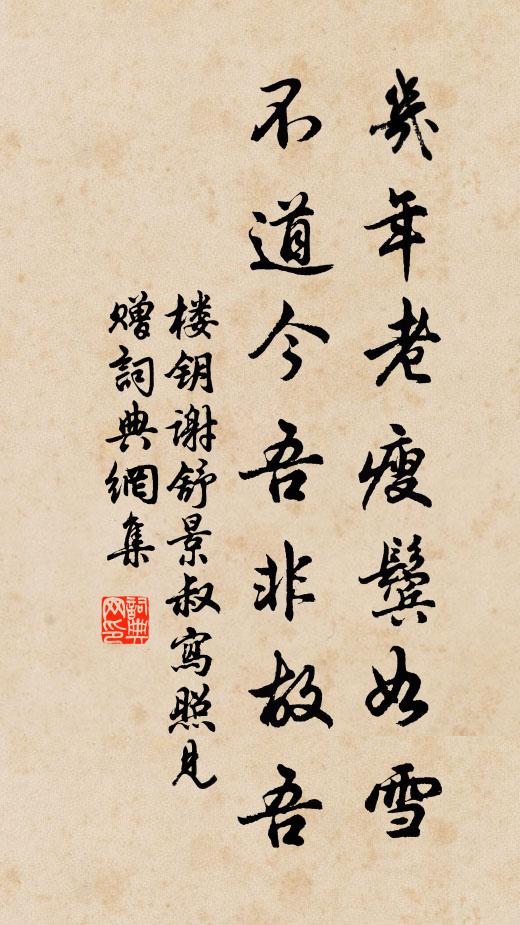 幾年老瘦鬓如雪
不道今吾非故吾
楼钥谢舒景叔寫照見
赠詞典網集
詞典网印